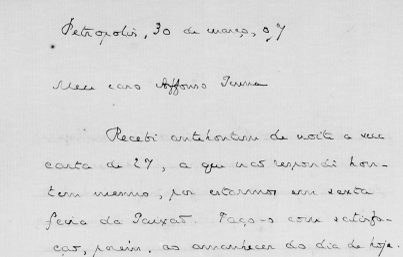 Petropolis, 30 de março, 07
Meu caro Affonso Penna
Recebi antehontem de noite a sua
carta de 27, a que não respondi hon-
tem mesmo, por estarmos em sexta
feira da Paixão. Faço-o com satisfa-
ção, porém, ao amanhecer do dia de hoje.